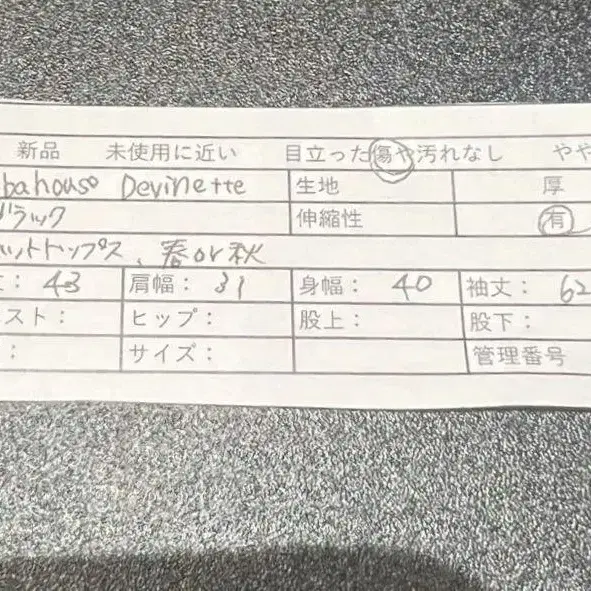 新品 未使用に近い 目立った傷や汚れなし やや
bahouse Devinette 生地 厚
ブラック 伸縮性 有
ットトップス、春or秋
: 43 肩幅: 31 身幅: 40 袖丈: 62
スト: ヒップ: 股上: 股下:
: サイズ: 管理番号